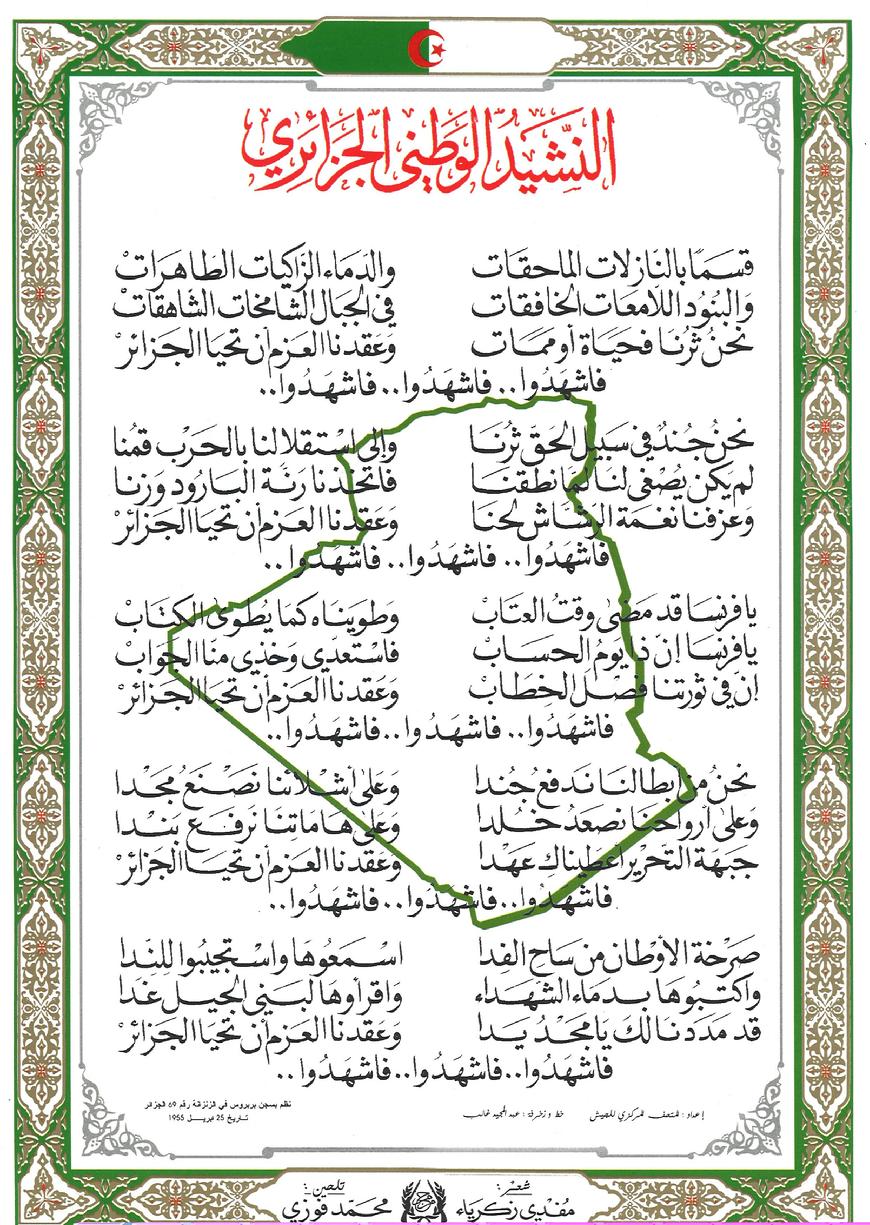 النَّشِيدُ الوَطَنِي الجَزَائِرِي
قسمًا بالنازلات الماحقات والدماء الزاكيات الطاهرات
والبنود اللامعات الخافقات في الجبال الشامخات الشاهقات
نحن ثرنا فحياة أو ممات وعقدنا العزم أن تحيا الجزائر
فاشهدوا.. فاشهدوا.. فاشهدوا..
نحن جند في سبيل الحق ثرنا وإلى استقلالنا بالحرب قمنا
لم يكن يصغى لنا لما نطقنا فاتخذنا رنة البارود وزنا
وعزفنا نغمة الرشاش لحنا وعقدنا العزم أن تحيا الجزائر
فاشهدوا.. فاشهدوا.. فاشهدوا..
يا فرنسا قد مضى وقت العتاب وطويناه كما يطوى الكتاب
يا فرنسا إن ذا يوم الحساب فاستعدي وخذي منا الجواب
إن في ثورتنا فصل الخطاب وعقدنا العزم أن تحيا الجزائر
فاشهدوا.. فاشهدوا.. فاشهدوا..
نحن من أبطالنا ندفع جندا وعلى أشلائنا نصنع مجدا
وعلى أرواحنا نصعد خلدا وعلى هاماتنا نرفع بندا
جبهة التحرير أعطيناك عهدا وعقدنا العزم أن تحيا الجزائر
فاشهدوا.. فاشهدوا.. فاشهدوا..
صرخة الأوطان من ساح الفدا اسمعوها واستجيبوا للندا
واكتبوها بدماء الشهداء واقرأوها لبني الجيل غدا
قد مددنا لك يا مجد يدا وعقدنا العزم أن تحيا الجزائر
فاشهدوا.. فاشهدوا.. فاشهدوا..
نظم بسجن بربروس في الزنزانة رقم 69 الجزائر
تاريخ 25 ابريل 1955
إعداد: المتحف المركزي للجيش خط وزخرفة: عبد المجيد غالب
شعر: تلحين:
مفدي زكرياء محمد فوزي